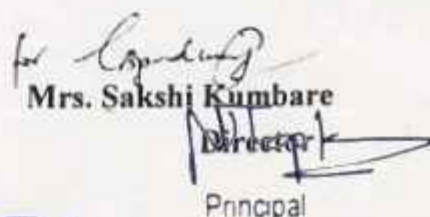 for
Mrs. Sakshi Kumbare
Director
Principal